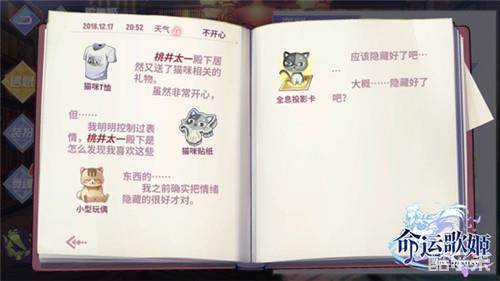 2018.12.17 20:52 天气 不开心
桃井太一殿下居
然又送了猫咪相关的
礼物。
虽然非常开心，
猫咪T恤
但……
我明明控制过表
情，桃井太一殿下是
怎么发现我喜欢这些
猫咪贴纸
东西的……
我之前确实把情绪
隐藏的很好才对。
小型玩偶
应该隐藏好了吧…
…
大概……隐藏好了
吧？
全息投影卡
命运歌姬